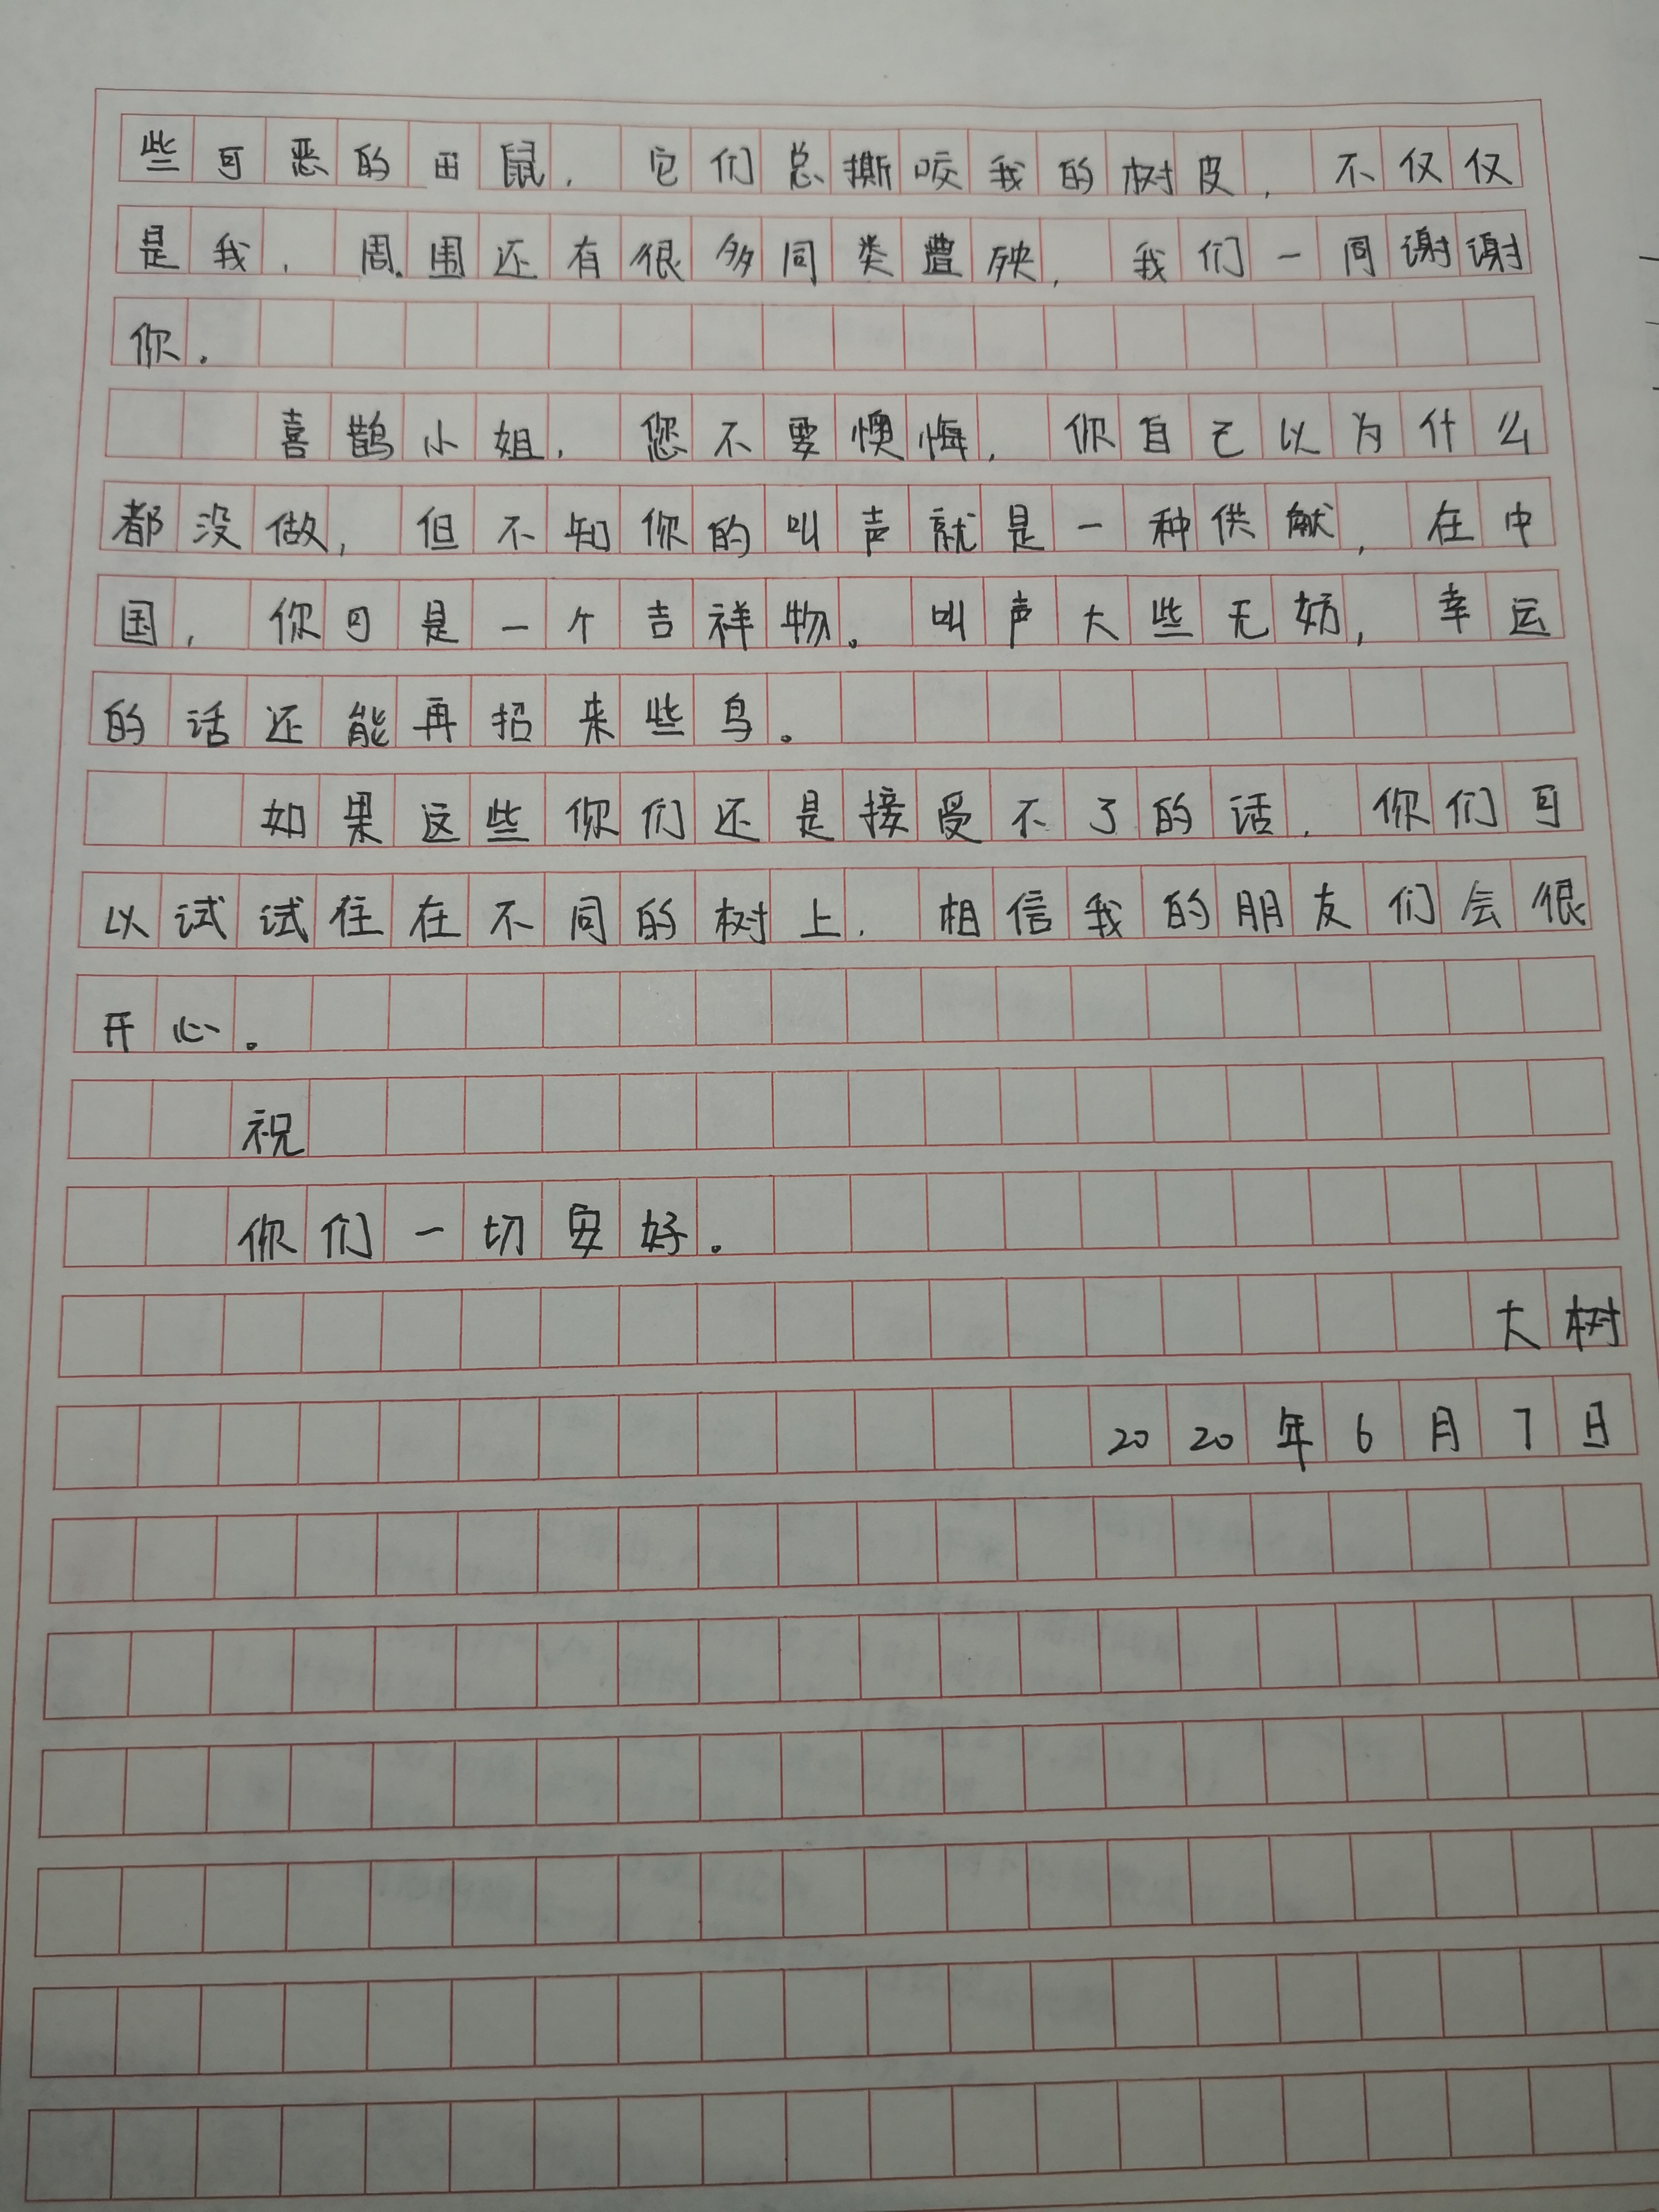 些可恶的田鼠，它们总撕咬我的树皮，不仅仅
是我，周围还有很多同类遭殃，我们一同谢谢
你。
喜鹊小姐，您不要懊悔，你自己以为什么
都没做，但不知你的叫声就是一种供献，在中
国，你可是一个吉祥物。叫声大些无妨，幸运
的话还能再招来些鸟。
如果这些你们还是接受不了的话，你们可
以试试住在不同的树上，相信我的朋友们会很
开心。
祝
你们一切安好。
大树
2020年6月7日